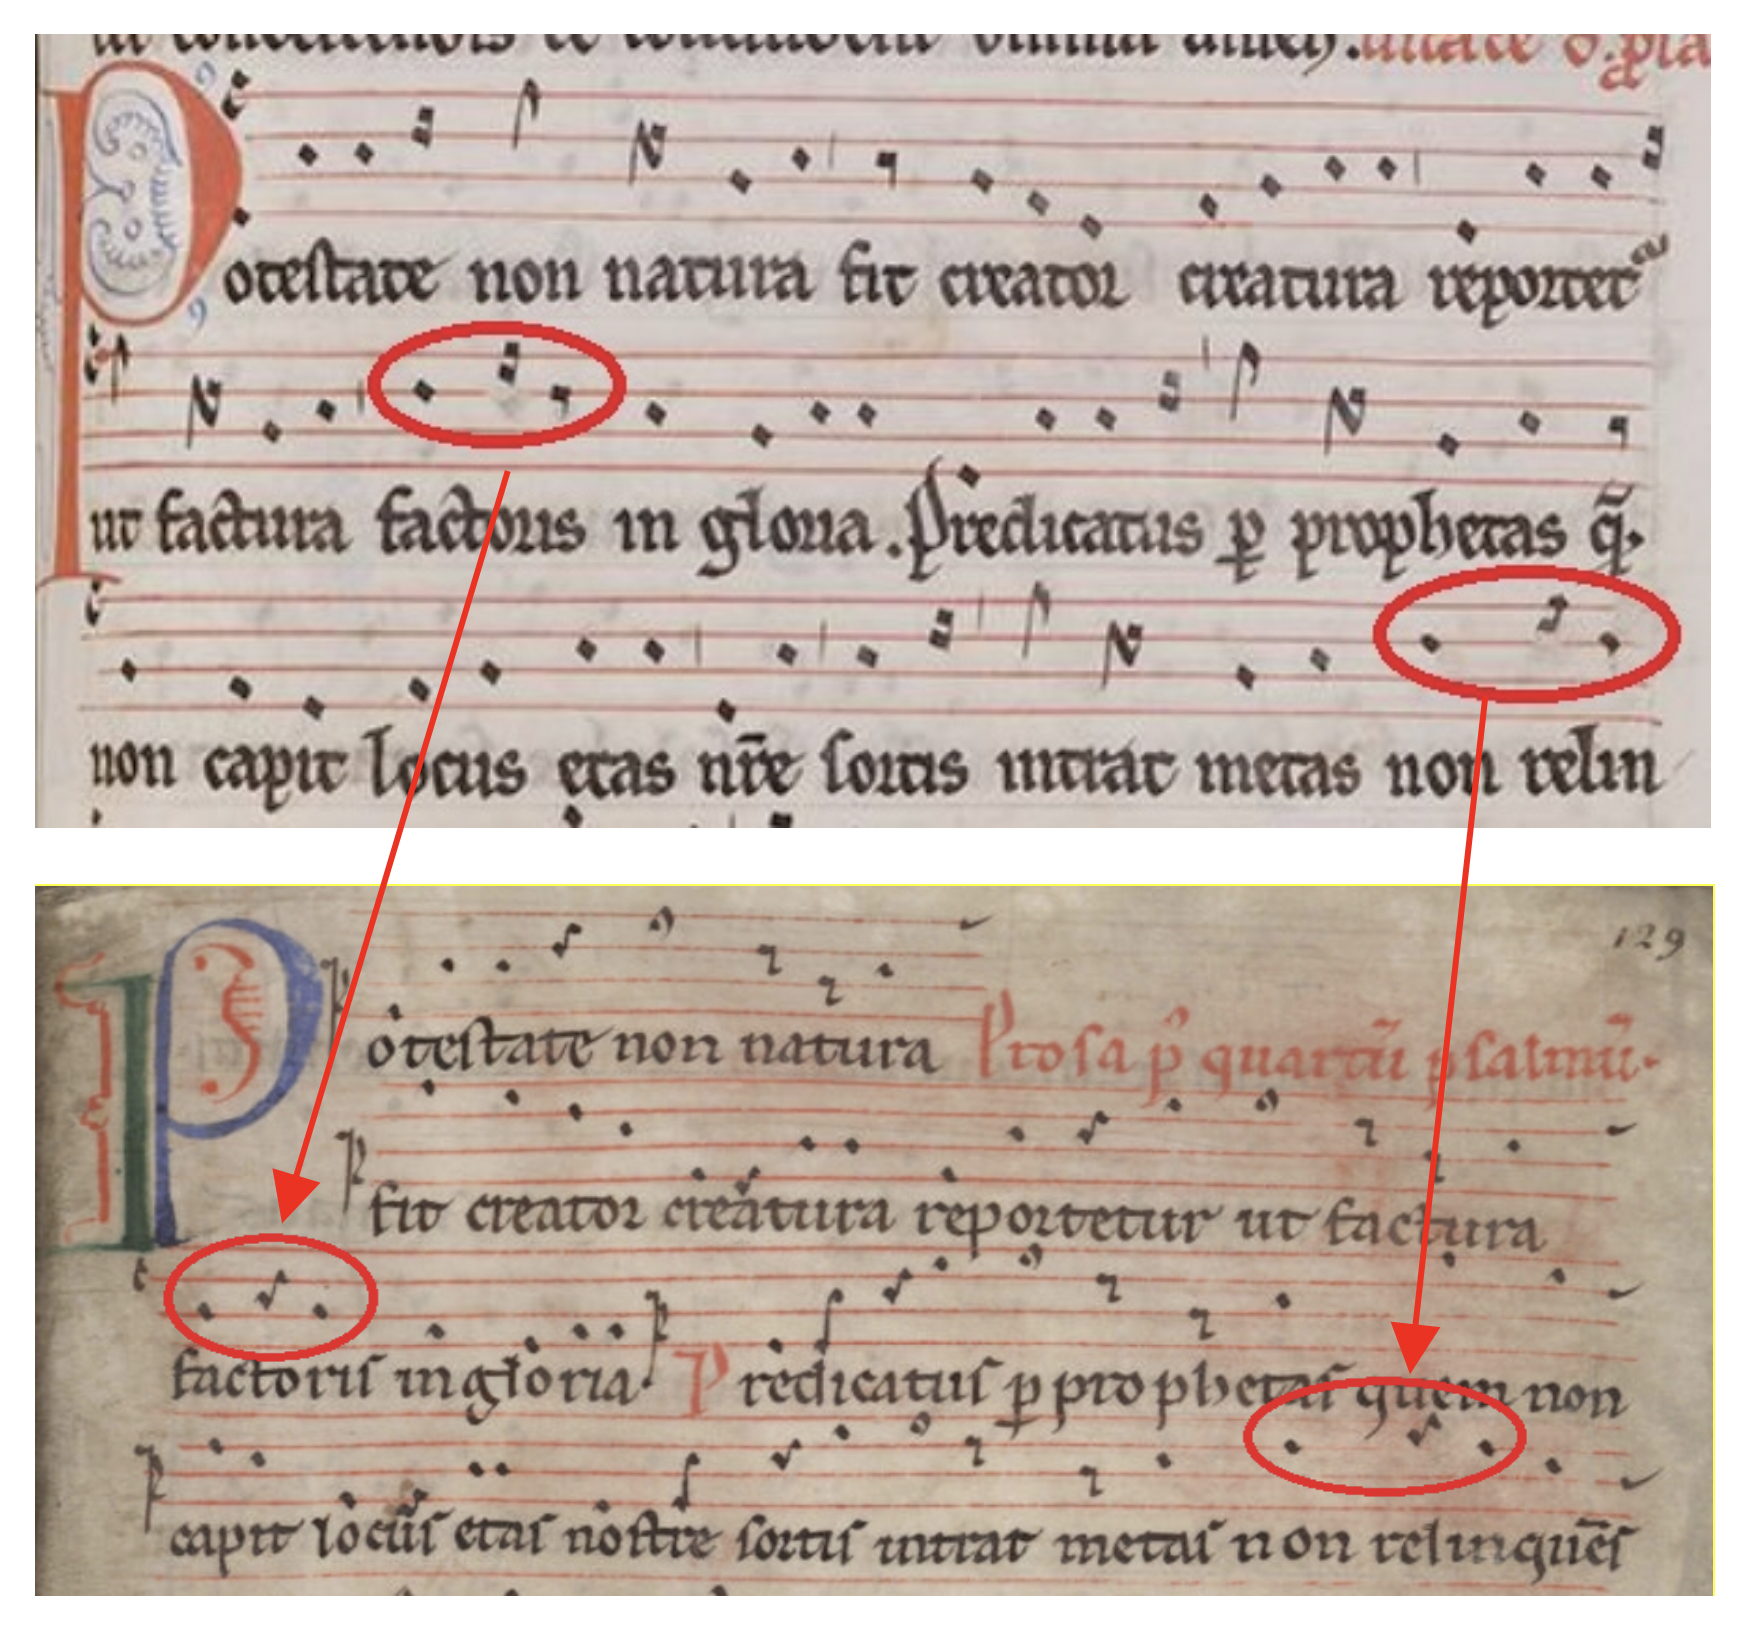 Potestate non natura fit creator creatura reportet᷑
ut factura factoris in gloria. Predicatus ꝑ prophetas q̄
non capit locus etas nr̄e sortis intrat metas non relin
129
Potestate non natura Prosa p̉ quartū psalmū.
fit creator creatura reportetur ut factura
factoris in gloria. Predicatus ꝑ prophetas quem non
capit locus etas nostre sortis intrat metas non relinquēs